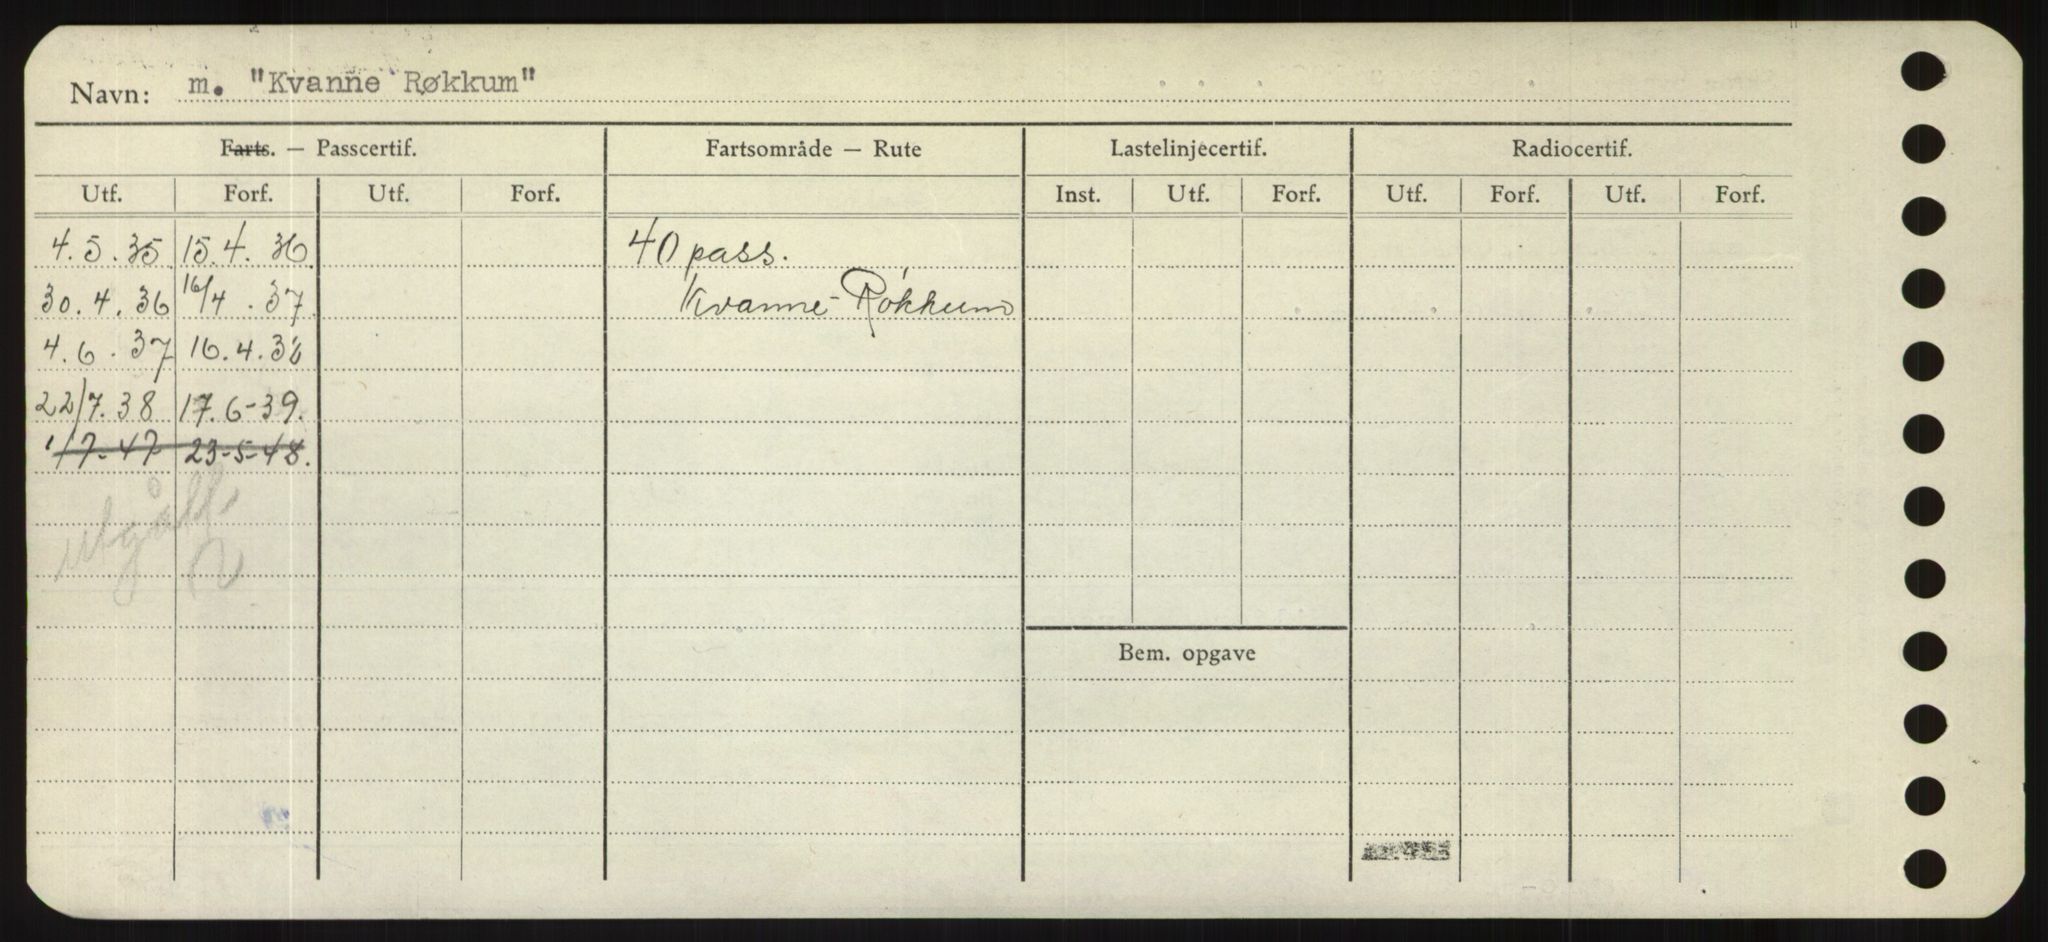 Navn: m. "Kvanne Røkkum"
Farts. — Passcertif. Fartsområde — Rute Lastelinjecertif. Radiocertif.
Utf. Forf. Utf. Forf. Inst. Utf. Forf. Utf. Forf. Utf. Forf.
4.5.35 15.4.36 40 pass.
30.4.36 16/4.37 Kvanne-Røkkum
4.6.37 16.4.38
22/7.38 17.6-39.
1/7-47 23-5-48.
utgått
Bem. opgave